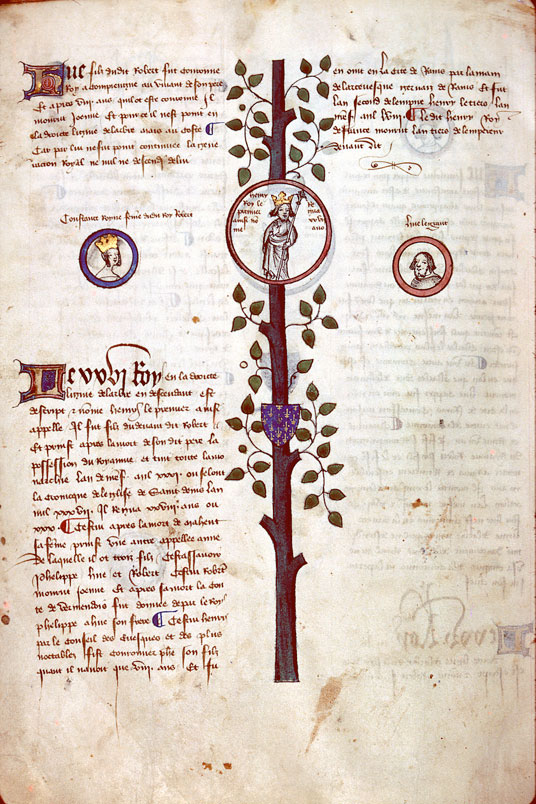 Hue filz dudit Robert fut couronne
Roy a compiengne au vivant de son pere
Et apres viii ans quil ot este couronne Il
mourut Joenne Et pour ce il nest point en
la droite ligne de larbre mais au coste
Car par lui ne fut point continuee la
Royal ne nul ne descendi de lui
en oint en la cite de Rains par la main
de Rains Et fut
lan second de lempire henry le tiers lan
mil lviii Ledit henry Roy
de france mourut lan tiers de lempereur
devant dit
Constance Royne feme dudit Roy Robert
henry
Roy le
premier
ainsi no
me
Re
gna
xxvii
ans
Hue le grant
Le xxxvi Roy en la droite
ligne de larbre en descendant est
descript et nome henry le premier ainsi
appelle Il fut filz du devant dit Robert
Et print apres la mort de son dit pere la
possession du Royaume et tint toute la mo
narchie lan de mil xxxi ou selon
la cronique de leglise de Saint denis lan
mil xxxviii Il Regna xxviii ans ou
xxx Cestui apres la mort de mahent
sa feme print une autre appellee anne
de laquelle il ot trois filz Cestassavoir
Phelippe hue et Robert Cestui Robert
mourut Joenne Et apres la mort la con
te de vermendois fut donnee depar le Roy
phelippe a hue son frere Cestui henry
par le conseil des Evesques et des plus
notables fist couronner phe son filz
quant il navoit que viii ans Et fu